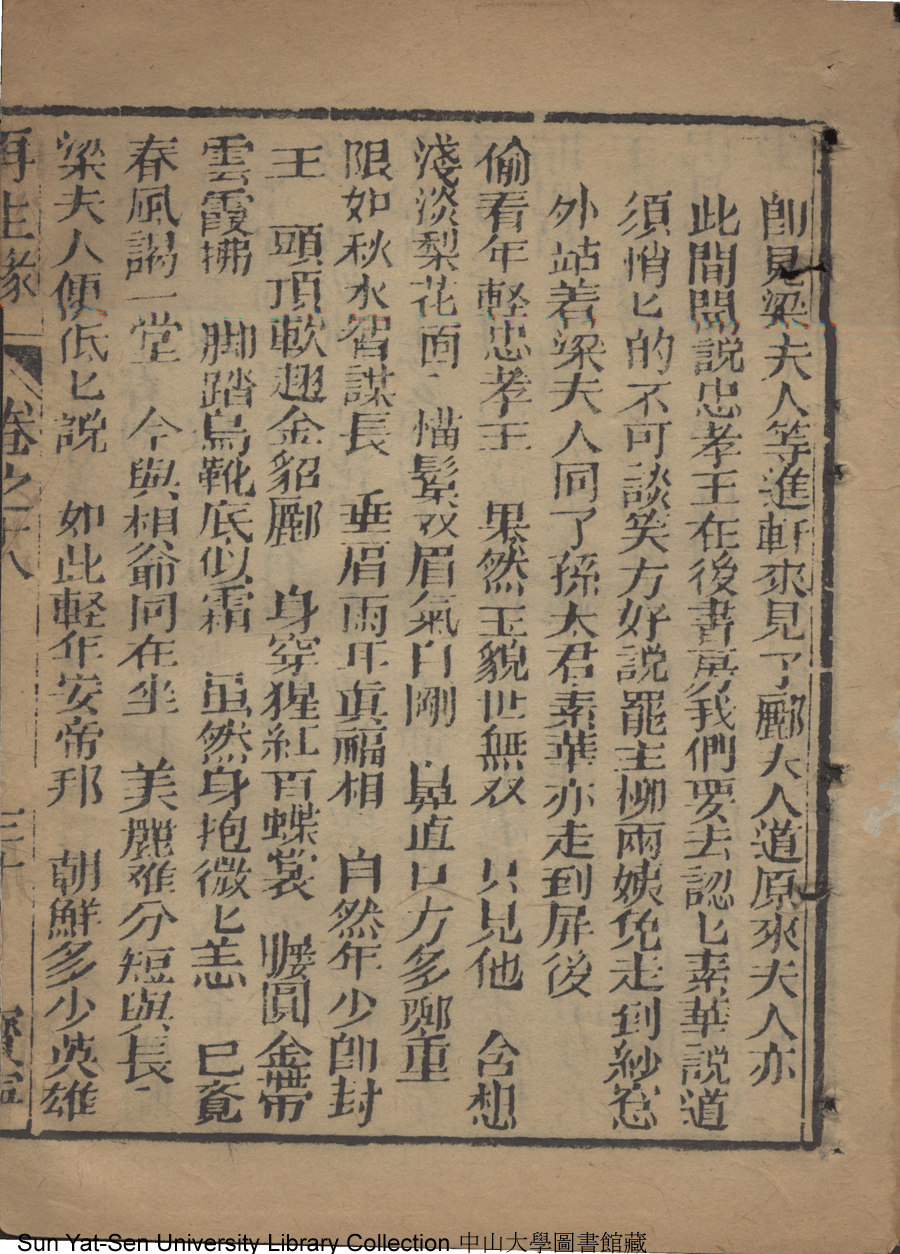 卽見梁夫人等進軒來見了酈大人道原來夫人亦
此間聞說忠孝王在後書房我們要去認匕素華說道
須悄匕的不可談笑方好說罷主柳兩姨免走到紗窓
外站着梁夫人同了孫太君素華亦走到屏後
偷看年輕忠孝王 果然玉貌世無双 只見他 含想
淺淡梨花面 描鬂双眉氣自剛 鼻直口方多鄭重
限如秋水智謀長 垂肩兩耳眞福相 自然年少卽封
王 頭頂軟翅金貂 身穿猩紅百蝶裳 腰圓金帶
雲霞拂 脚踏烏靴底似霜 虽然身抱微匕恙 已竟
春風謁一堂 今與相爺同在坐 美麗难分短與長
梁夫人便低匕說 如此輕年安帝邦 朝鮮多少英雄
再生緣 卷之十八